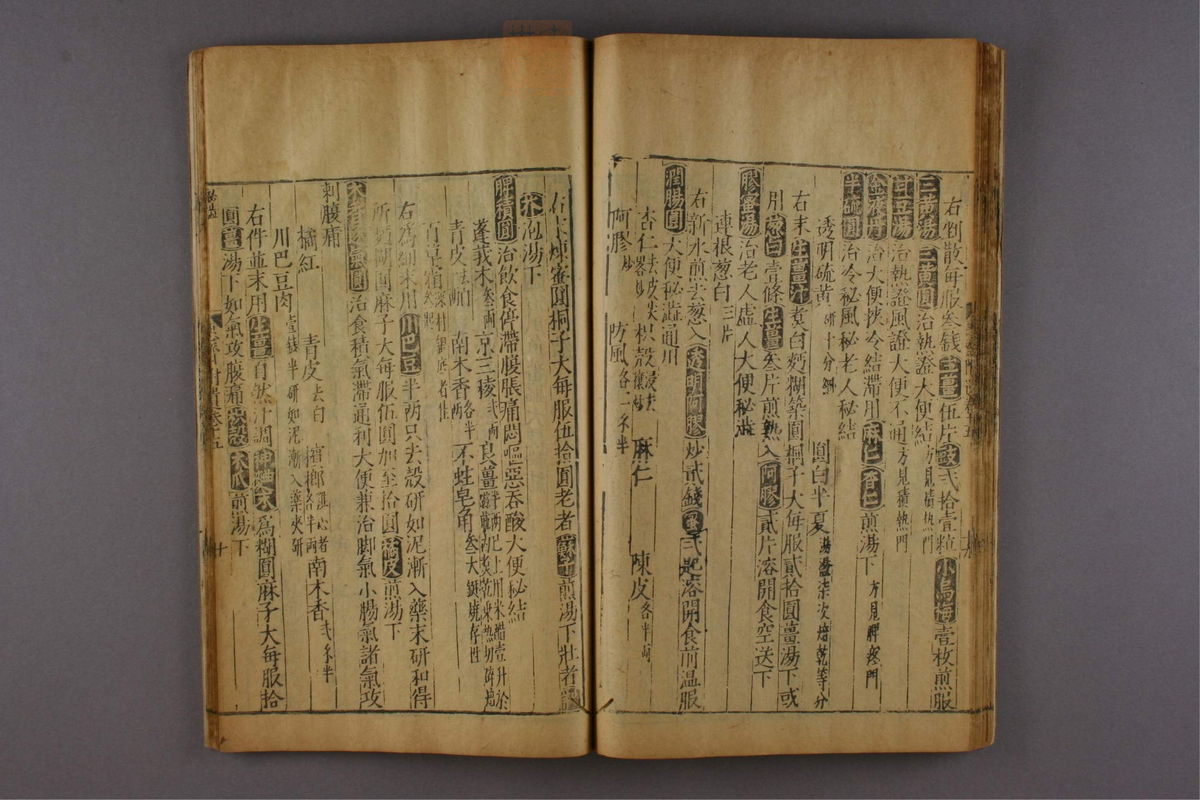 右剉散每服叁錢生薑伍片豉弍拾壹粒小烏梅壹枚煎服
三黃湯 三黃圓治熱證大便結方見積熱門
甘豆湯治熱證風證大便不通方見積熱門
金液丹治大便挾冷結滯用麻仁杏仁煎湯下方見脾疼門
半硫圓治冷秘風秘老人秘結
透明硫黃研十分細 圓白半夏湯盪柒次焙乾等分
右末生薑汁煮白麪糊築圓桐子大每服貳拾圓薑湯下或
用葱白壹條生薑叁片煎熟入阿膠貳片溶開食空送下
膠蜜湯治老人虛人大便秘澁
連根葱白三片
右新水煎去葱入透明阿膠炒貳錢蜜弍匙溶開食前温服
潤腸圓大便秘澁通用
杏仁去皮炎畧炒 枳殼浸去穰炒 麻仁 陳皮各半兩
阿膠炒 防風各二不半
右末煉蜜圓桐子大每服伍拾圓老者蘇子煎湯下壯者
米泔湯下
脾積圓治飲食停滯腹脹痛悶嘔惡吞酸大便秘結
蓬莪朮叁兩 京三稜弍兩 良薑半兩已上用米醋壹升於
青皮去白兩 南木香各半兩 不蛀皂角叁大鋌燒存性
百草霜深村
右為細末用川巴豆半兩只去殼研如泥漸入藥末研和得
所麪糊圓麻子大每服伍圓加至拾圓橘皮煎湯下
木香逐氣圓治食積氣滯通利大便兼治脚氣小腸氣諸氣攻
刺腹痛
橘紅 青皮去白 檳榔雞心者各半兩 南木香弍不半
川巴豆肉壹錢半研如泥漸入藥夾研
右件並末用生薑自然汁調神麴末為糊圓麻子大每服拾
圓薑湯下如氣攻腹痛木瓜煎湯下